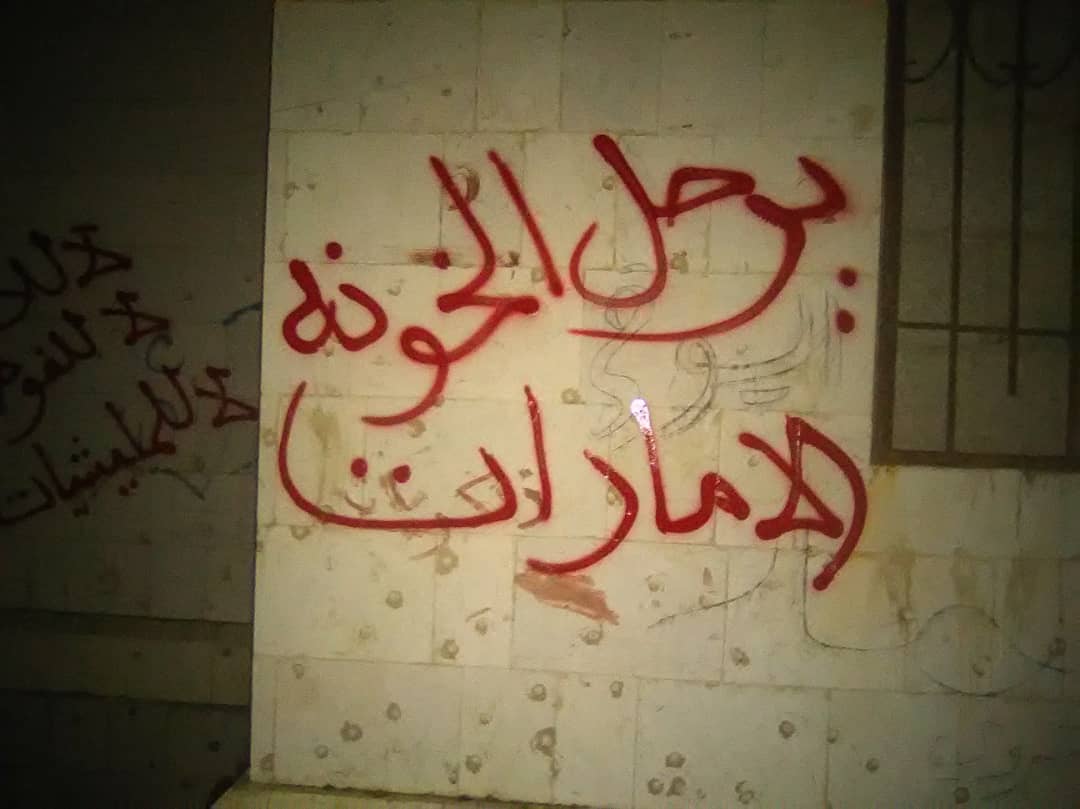 يرحل الخونه
الامارات
لا للفوضى
لا للمليشيات